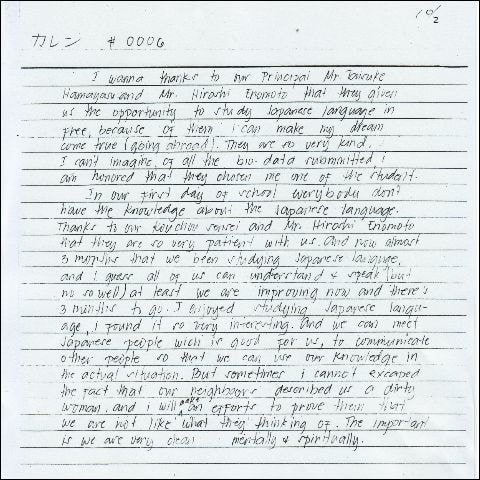 10/2
カレン # 0006
I wanna thanks to our Principal Mr. Taisuke
Hamayasu and Mr. Hiroshi Enomoto that they given
us the opportunity to study Japanese language in
free, because of them i can make my dream
come true (going abroad). They are so very kind.
I cant imagine of all the bio-data submmitted i
am honored that they chosen me one of the student.
In our first day of school everybody don't
have the knowledge about the Japanese language.
Thanks to our sensei and Mr. Hiroshi Enomoto
that they are so very patient with us. And now almost
3 months that we been studying Japanese language,
and i guess all of us can understand & speak (but
no so well) at least we are improving now and there's
3 months to go. I enjoyed studying Japanese langu-
age, i found it so very interesting. And we can meet
Japanese people wich is good for us, to communicate
other people so that we can use our knowledge in
the actual situation. But sometimes i cannot excaped
the fact that our neighboors described us a dirty
woman. and i will make an efforts to prove them that
we are not like what they thinking of. The important
is we are very clean mentally & spiritually.